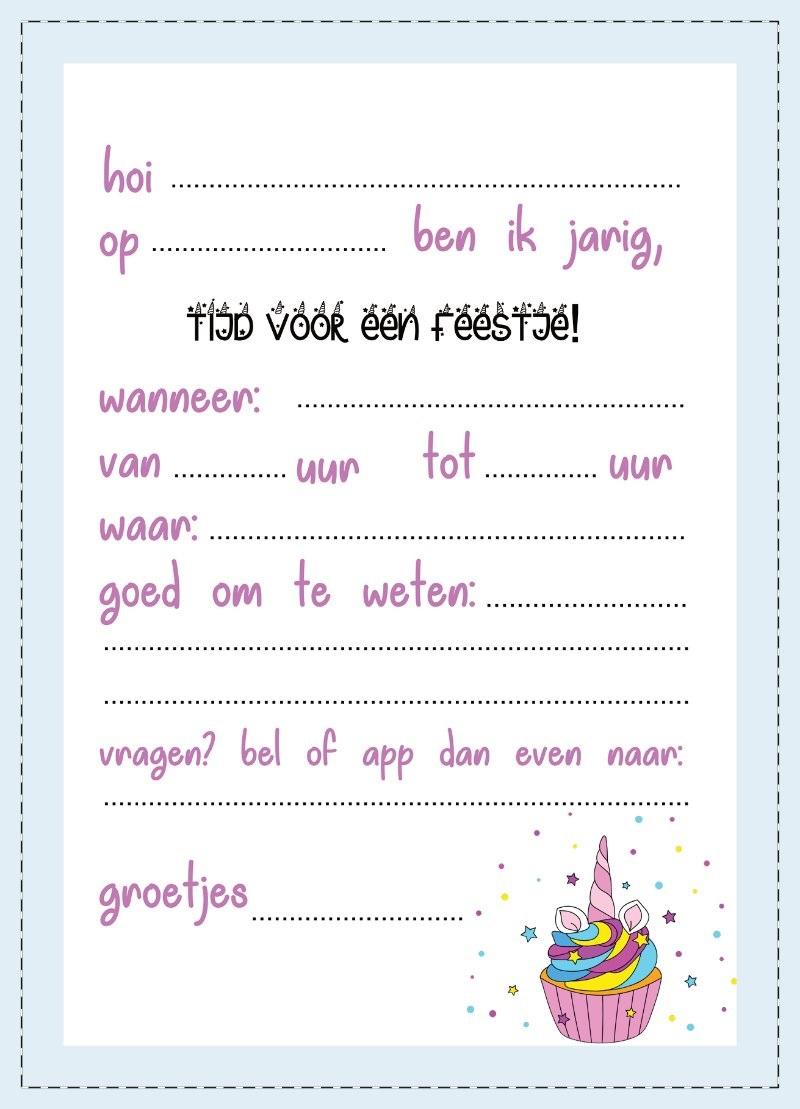 hoi ........................................
op .................... ben ik jarig,
TIJD VOOR EEN FEESTJE!
wanneer: ..............................
van ............ uur tot ............ uur
waar: ........................................
goed om te weten: ....................
............................................................
............................................................
vragen? bel of app dan even naar:
............................................................
groetjes ....................